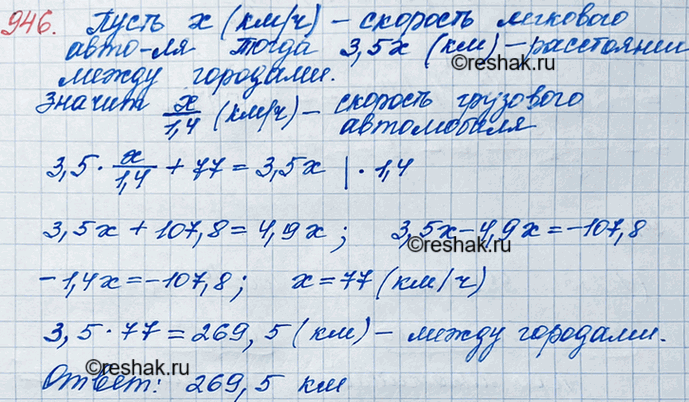 946. Пусть x (км/ч) – скорость легкового
авто-ля тогда 3,5x (км) – расстоянии
между городами.
©reshak.ru
Значит x/1,4 (км/ч) – скорость грузового
автомобиля
3,5 · x/1,4 + 77 = 3,5x | · 1,4
3,5x + 107,8 = 4,9x ; 3,5x – 4,9x = –107,8
©reshak.ru
–1,4x = –107,8 ; x = 77 (км/ч)
3,5 · 77 = 269,5 (км) – между городами.
Ответ: 269,5 км
©reshak.ru